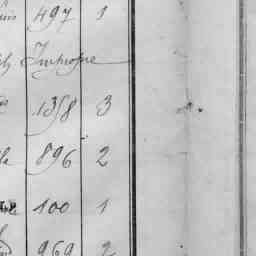 497 1
Impropre
1358 3
896 2
100 1
969 2